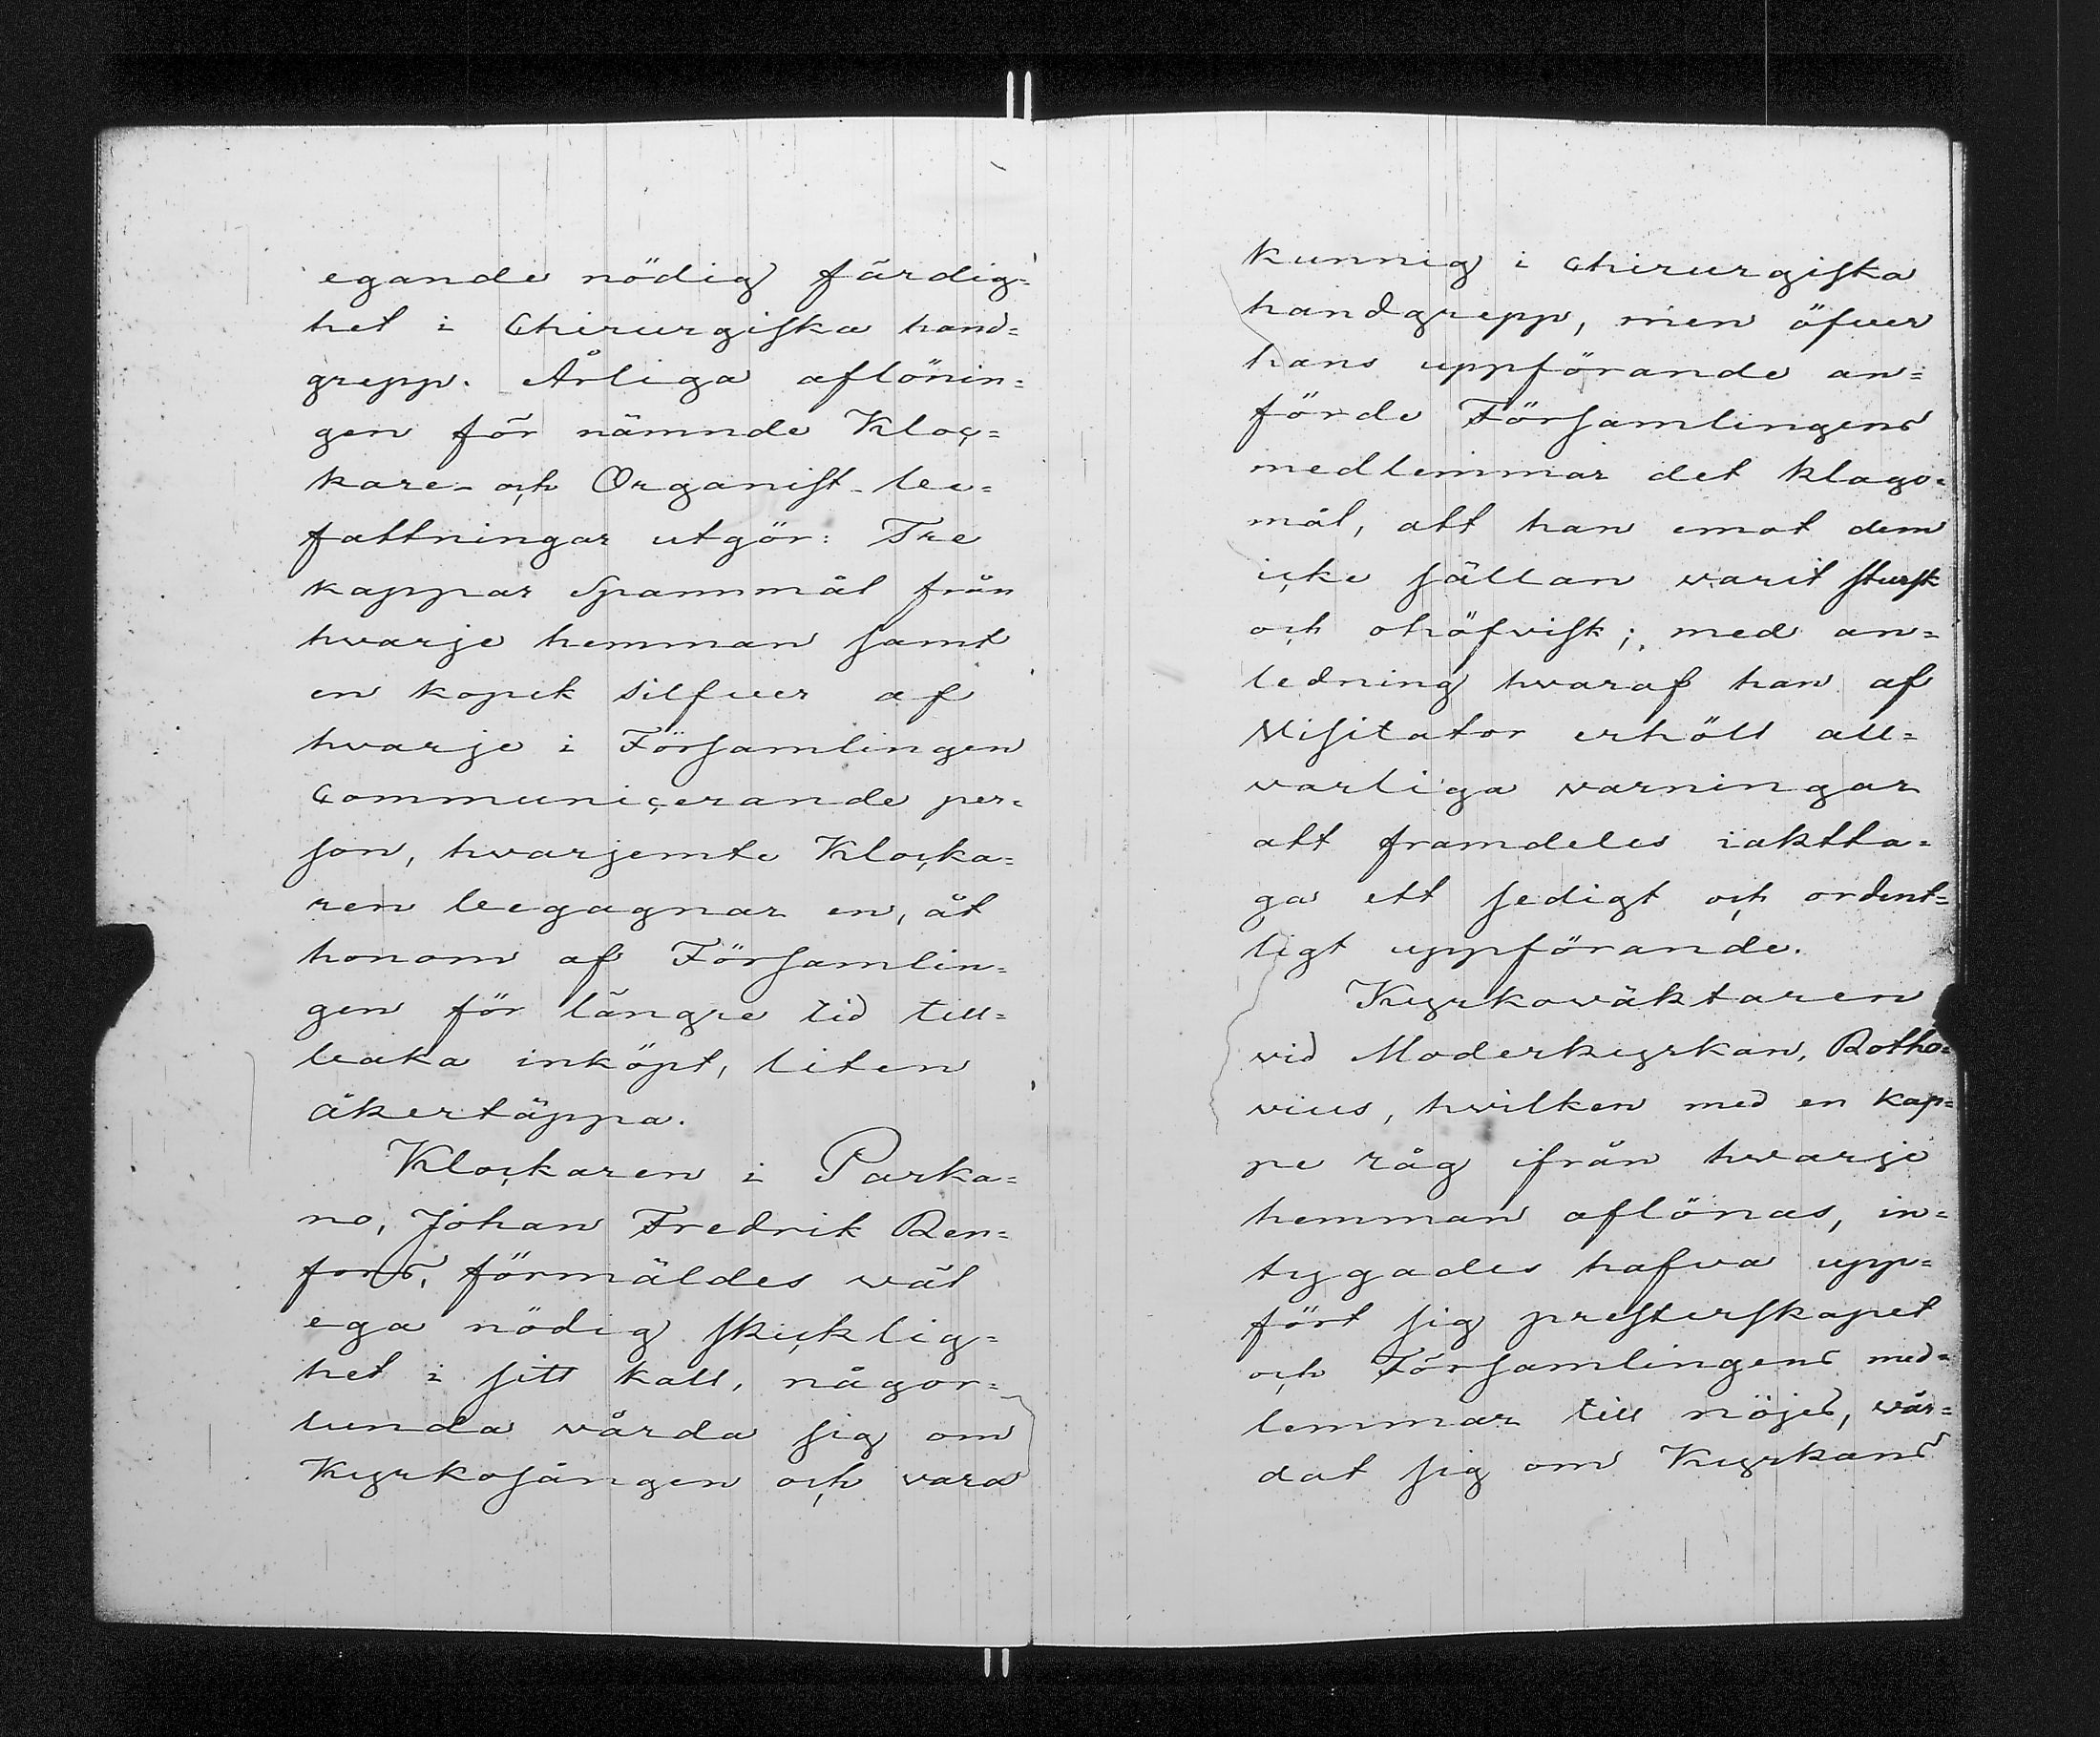 egande nödig färdig=
het i Chirurgiska hand=
grepp. Årliga aflönin=
gen för nämnde Kloc=
kare- och Organist-be=
fattningar utgör: Tre
kappar Spannmål från
hvarje hemman samt
en kopek silfver af
hvarje i Församlingen
Communicerande per=
son, hvarjemte Klocka=
ren begagnar en, åt
honom af Församlin=
gen för längre tid till=
baka inköpt, liten
åkertäppa.
Klockaren i Parka=
no, Johan Fredrik Ren=
fors, förmäldes väl
ega nödig skicklig=
het i sitt kall, någor=
lunda vårda sig om
Kyrkosången och vara
kunnig i Chirurgiska
handgrepp, men öfver
hans uppförande an=
förde Församlingens
medlemmar det klago=
mål, att han emot dem
icke sällan varit stursk
och ohöfvisk; med an=
ledning hvaraf han af
Visitator erhöll all=
varliga varningar
att framdeles iaktta=
ga ett sedigt och ordent=
ligt uppförande.
Kyrkoväktaren
vid Moderkyrkan, Rotho=
vius, hvilken med en kap=
pe råg ifrån hvarje
hemman aflönas, in=
tygades hafva upp=
fört sig presterskapet
och Församlingens med=
lemmar till nöjes, vår=
dat sig om Kyrkans